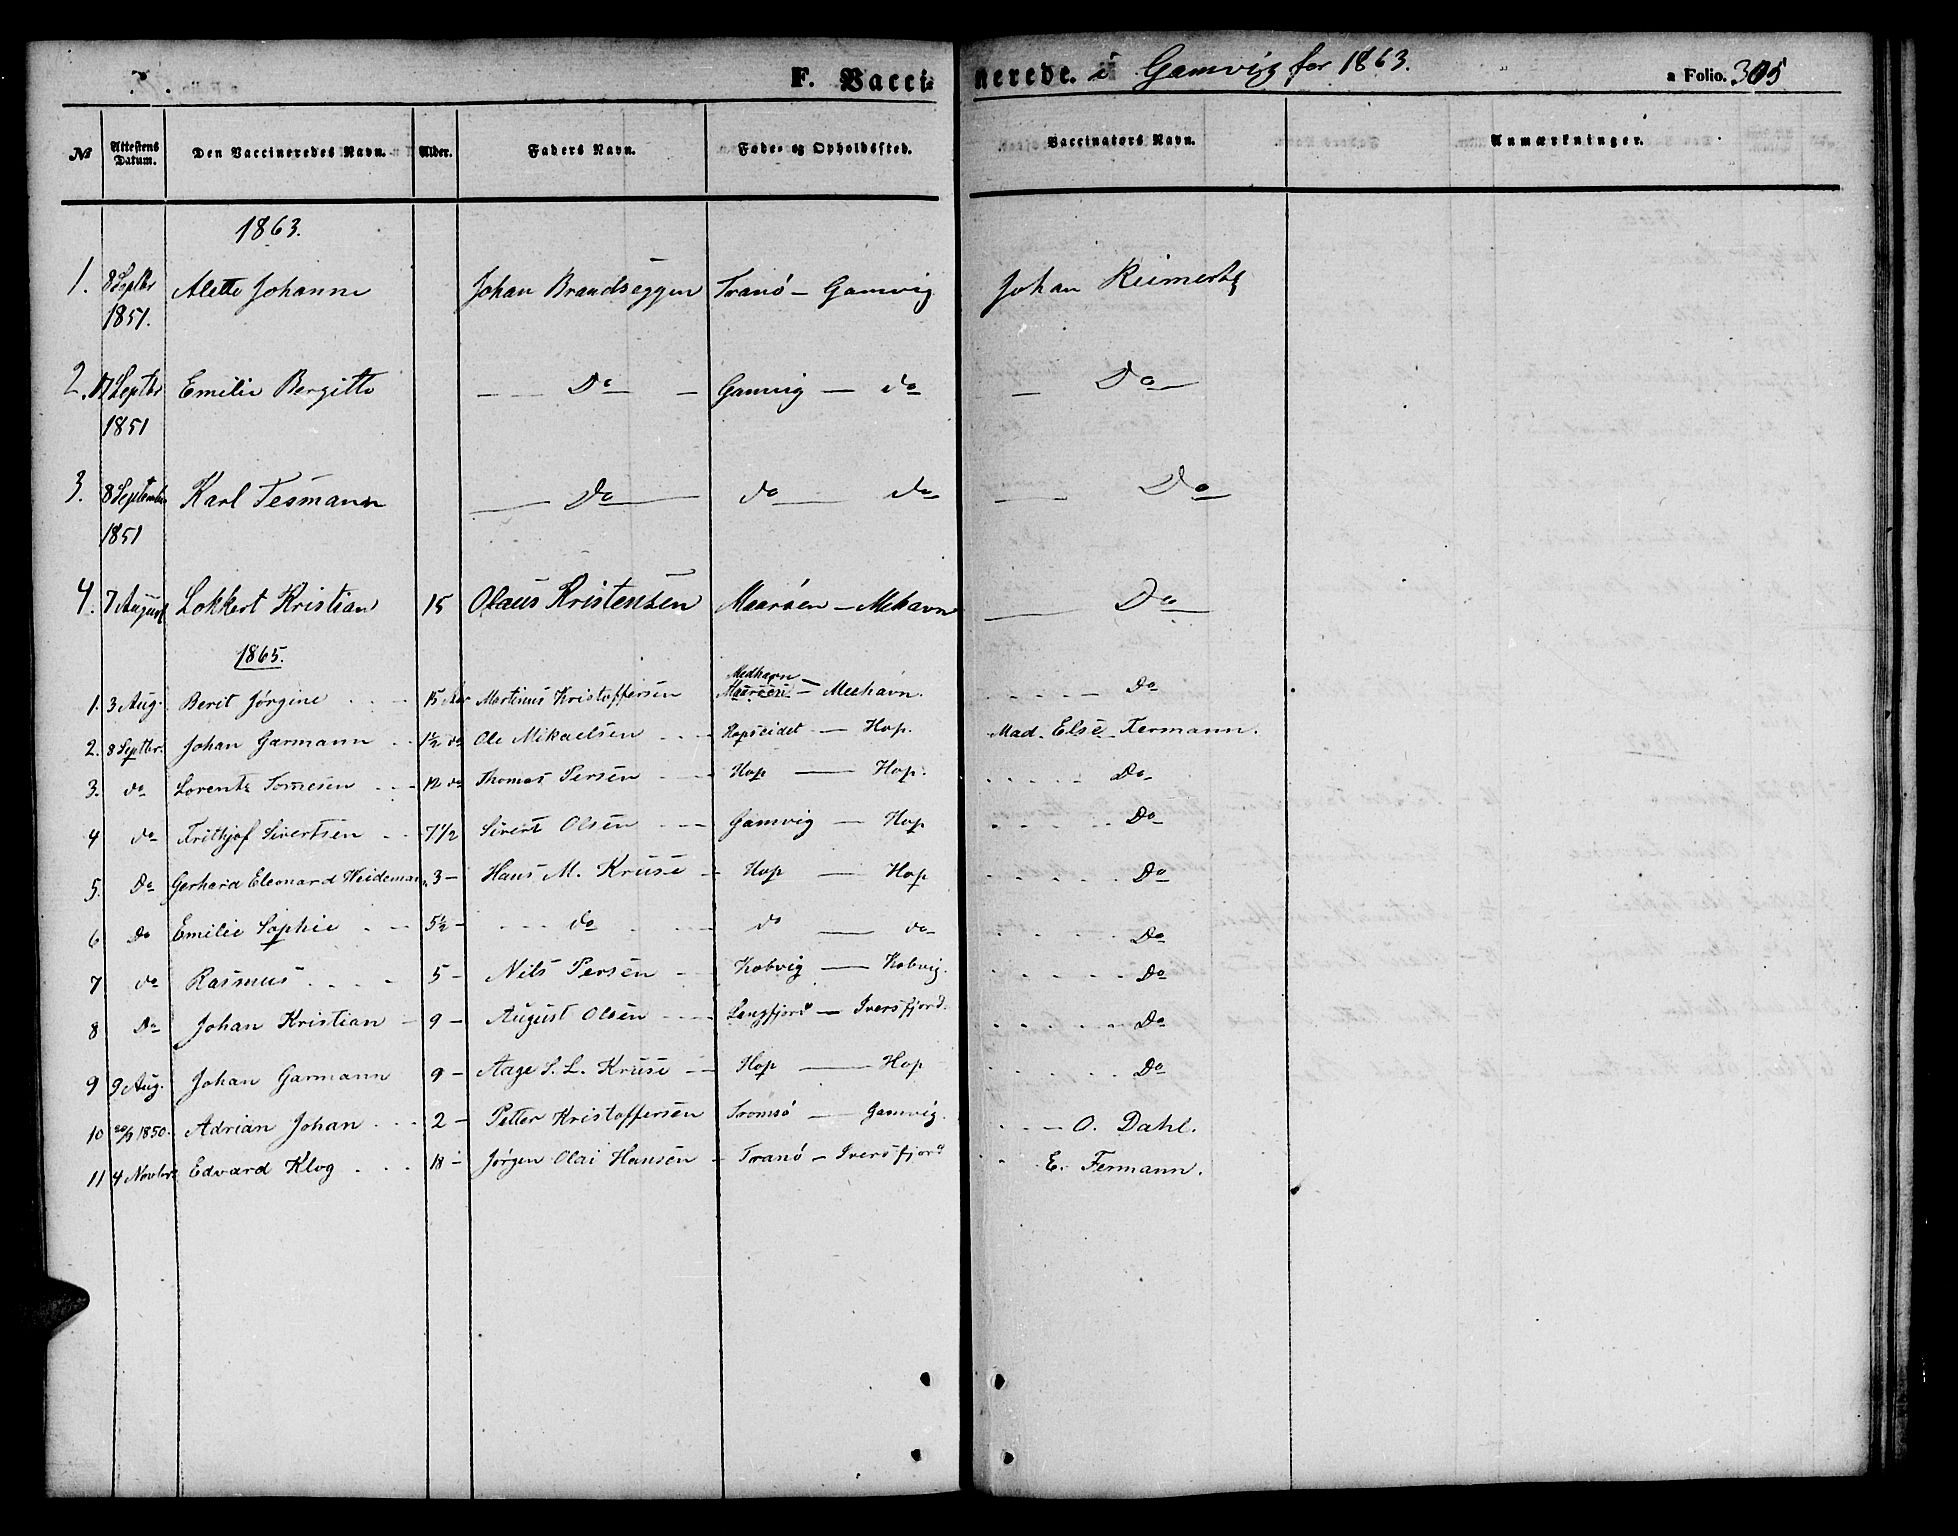 F. Vaccinerede. i Gamvig for 1863. a Folio. 305
№ Attestens Datum. Den Vaccineredes Navn. Alder. Faders Navn. Føde- og Opholdssted. Vaccinators Navn. Anmærkninger.
1863.
1. 8 Septbr 1851. Alette Johanne Johan Brandseggen Tranö — Gamvig Johan Reimerts
2. Septbr 1851 Emilie Bergitte — Do — Gamvig — do — Do —
3. 8 September 1851 Karl Tesmann — Do — do — do — Do —
4. 7 August Lokkert Kristian 15 Olaus Kristensen Maarsen — Mehavn — Do —
1865.
Medhavn
1. 3 Aug. Berit Jørgine 15 Aar Martinus Kristoffersen Maarsen — Meehavn. Do
2. 8 Septbr. Johan Garmann 1½ do Ole Mikaelsen Hopseidet — Hop. Mad. Else Fermann.
3. do Lorentz Tomesen 12 do Thomas Persen Hop — Hop. Do
4 do Frithjof Sivertsen 7 1/2 Sivert Olsen Gamvig — Hop Do
5. Do Gerhard Eleonard Weideman 3 — Hans M. Kruse — Hop — Hop Do
6 Do Emilie Sophie 5½ — do do — do Do
7 do Rasmus 5 — Nils Persen Kobvig — Kobvig. Do
8 Do Johan Kristian — 9 — August Olsen Langfjord — Iversfjord. Do
9 9 Aug. Johan Garmann 9 — Aage S. L. Kruse — Hop — Hop Do
10 20/9 1850. Adrian Johan 2 — Petter Kristoffersen Tromsö — Gamvig. O. Dahl.
11 4 Novbr Edvard Klog 18 — Jörgen Olai Hansen — Tranö — Iversfjord E. Fermann.